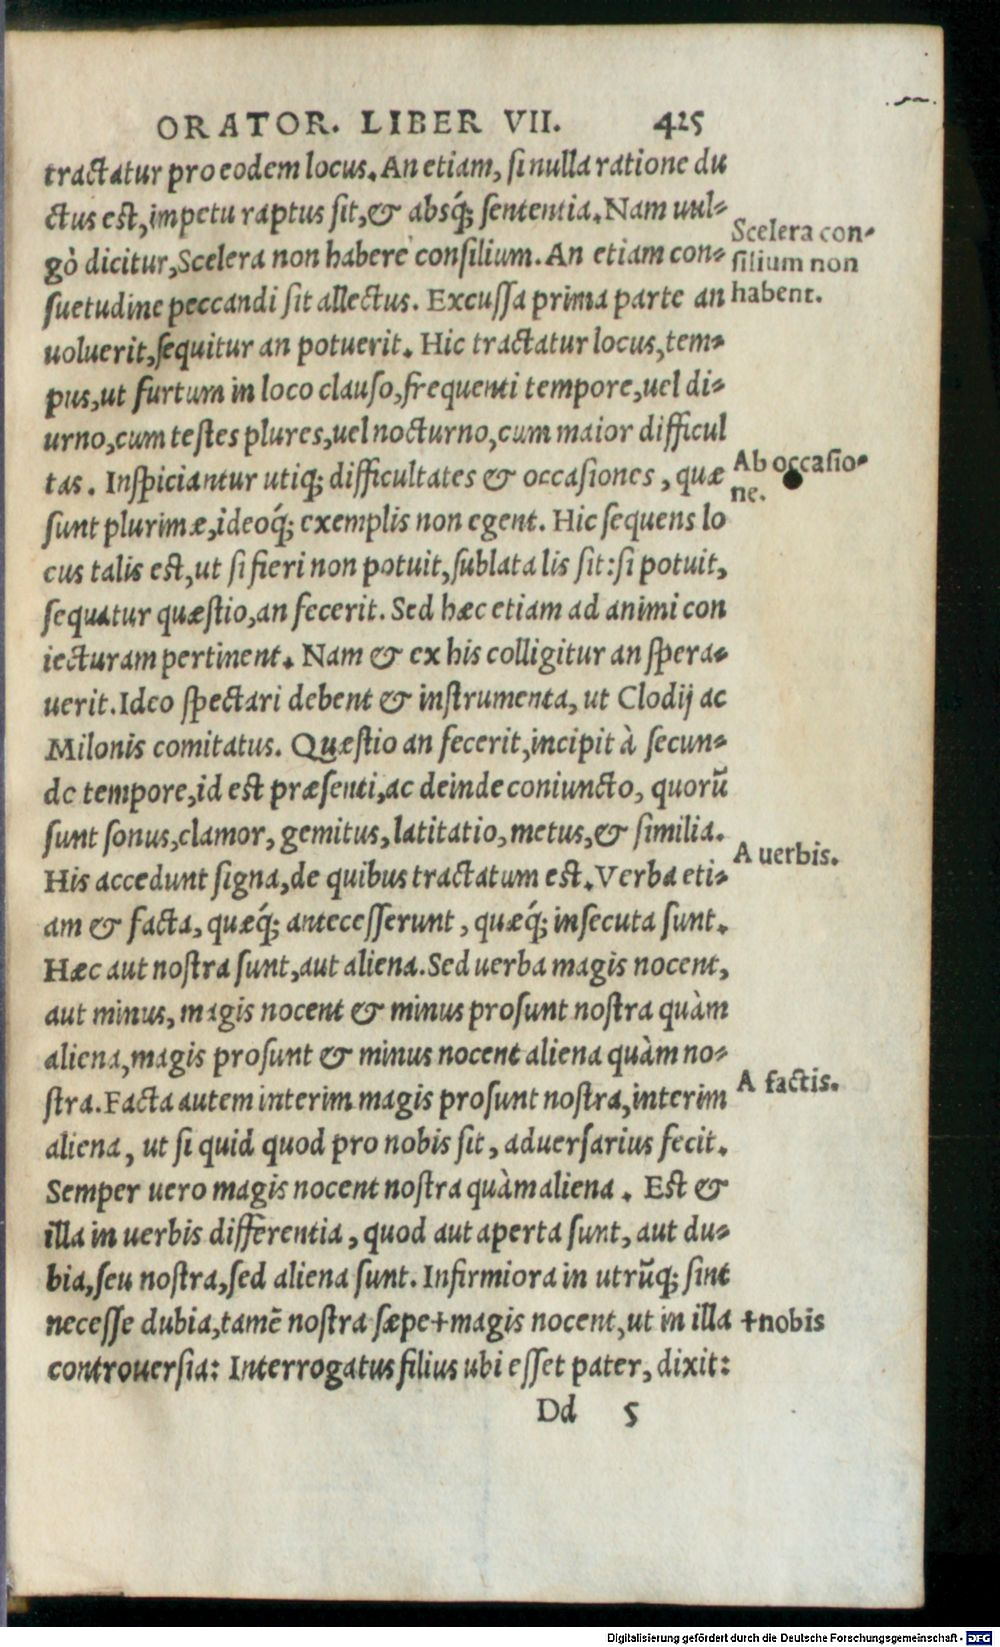 ORATOR. LIBER VII. 425
tractatur pro eodem locus. An etiam, si nulla ratione du
ctus est, impetu raptus sit, & absq́; sententia. Nam uul-
gò dicitur, Scelera non habere consilium. An etiam con-
suetudine peccandi sit allectus. Excussa prima parte an
uoluerit, sequitur an potuerit. Hic tractatur locus, tem-
pus, ut furtum in loco clauso, frequenti tempore, uel di-
urno, cum testes plures, uel nocturno, cum maior difficul
tas. Inspiciantur utiq; difficultates & occasiones, quæ
sunt plurimæ, ideoq́; exemplis non egent. Hic sequens lo
cus talis est, ut si fieri non potuit, sublata lis sit: si potuit,
sequatur quæstio, an fecerit. Sed hæc etiam ad animi con
iecturam pertinent. Nam & ex his colligitur an spera-
uerit. Ideo spectari debent & instrumenta, ut Clodij ac
Milonis comitatus. Quæstio an fecerit, incipit à secun-
do tempore, id est præsenti, ac deinde coniuncto, quorũ
sunt sonus, clamor, gemitus, latitatio, metus, & similia.
His accedunt signa, de quibus tractatum est. Verba eti-
am & facta, quæq́; antecesserunt, quæq́; insecuta sunt.
Hæc aut nostra sunt, aut aliena. Sed uerba magis nocent,
aut minus, magis nocent & minus prosunt nostra quàm
aliena, magis prosunt & minus nocent aliena quàm no-
stra. Facta autem interim magis prosunt nostra, interim
aliena, ut si quid quod pro nobis sit, aduersarius fecit.
Semper uero magis nocent nostra quàm aliena. Est &
illa in uerbis differentia, quod aut aperta sunt, aut du-
bia, seu nostra, sed aliena sunt. Infirmiora in utrũq; sint
necesse dubia, tamẽ nostra sæpe+magis nocent, ut in illa
controuersia: Interrogatus filius ubi esset pater, dixit:
Dd 5
Scelera con-
silium non
habent.
Ab occasio-
ne.
A uerbis.
A factis.
+nobis
Digitalisierung gefördert durch die Deutsche Forschungsgemeinschaft - DFG